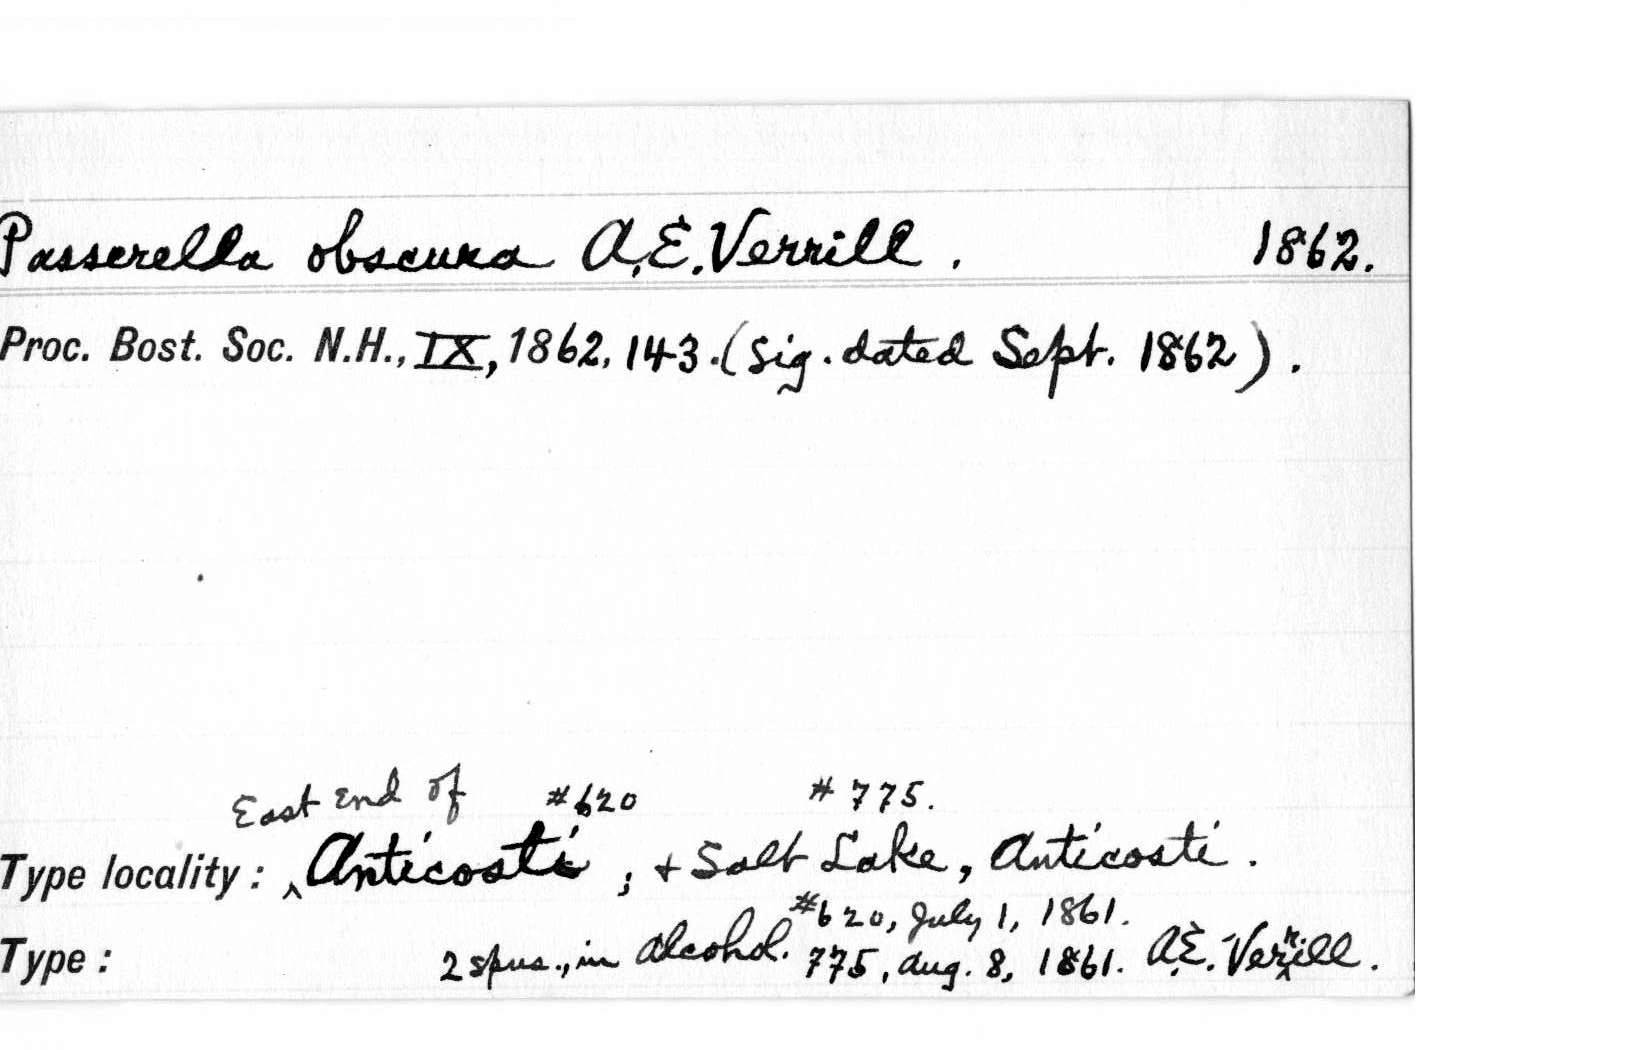 Passerella obscura A.E. Verrill. 1862.
Proc. Bost. Soc. N.H., IX, 1862, 143. (Sig. dated Sept. 1862).
East End of #620 # 775.
Type locality: ^ Anticosti; + Salt Lake, Anticosti.
#620, July 1, 1861.
Type: 2 spns., in alcohol. 775, Aug. 8, 1861. A.E. Verrill.